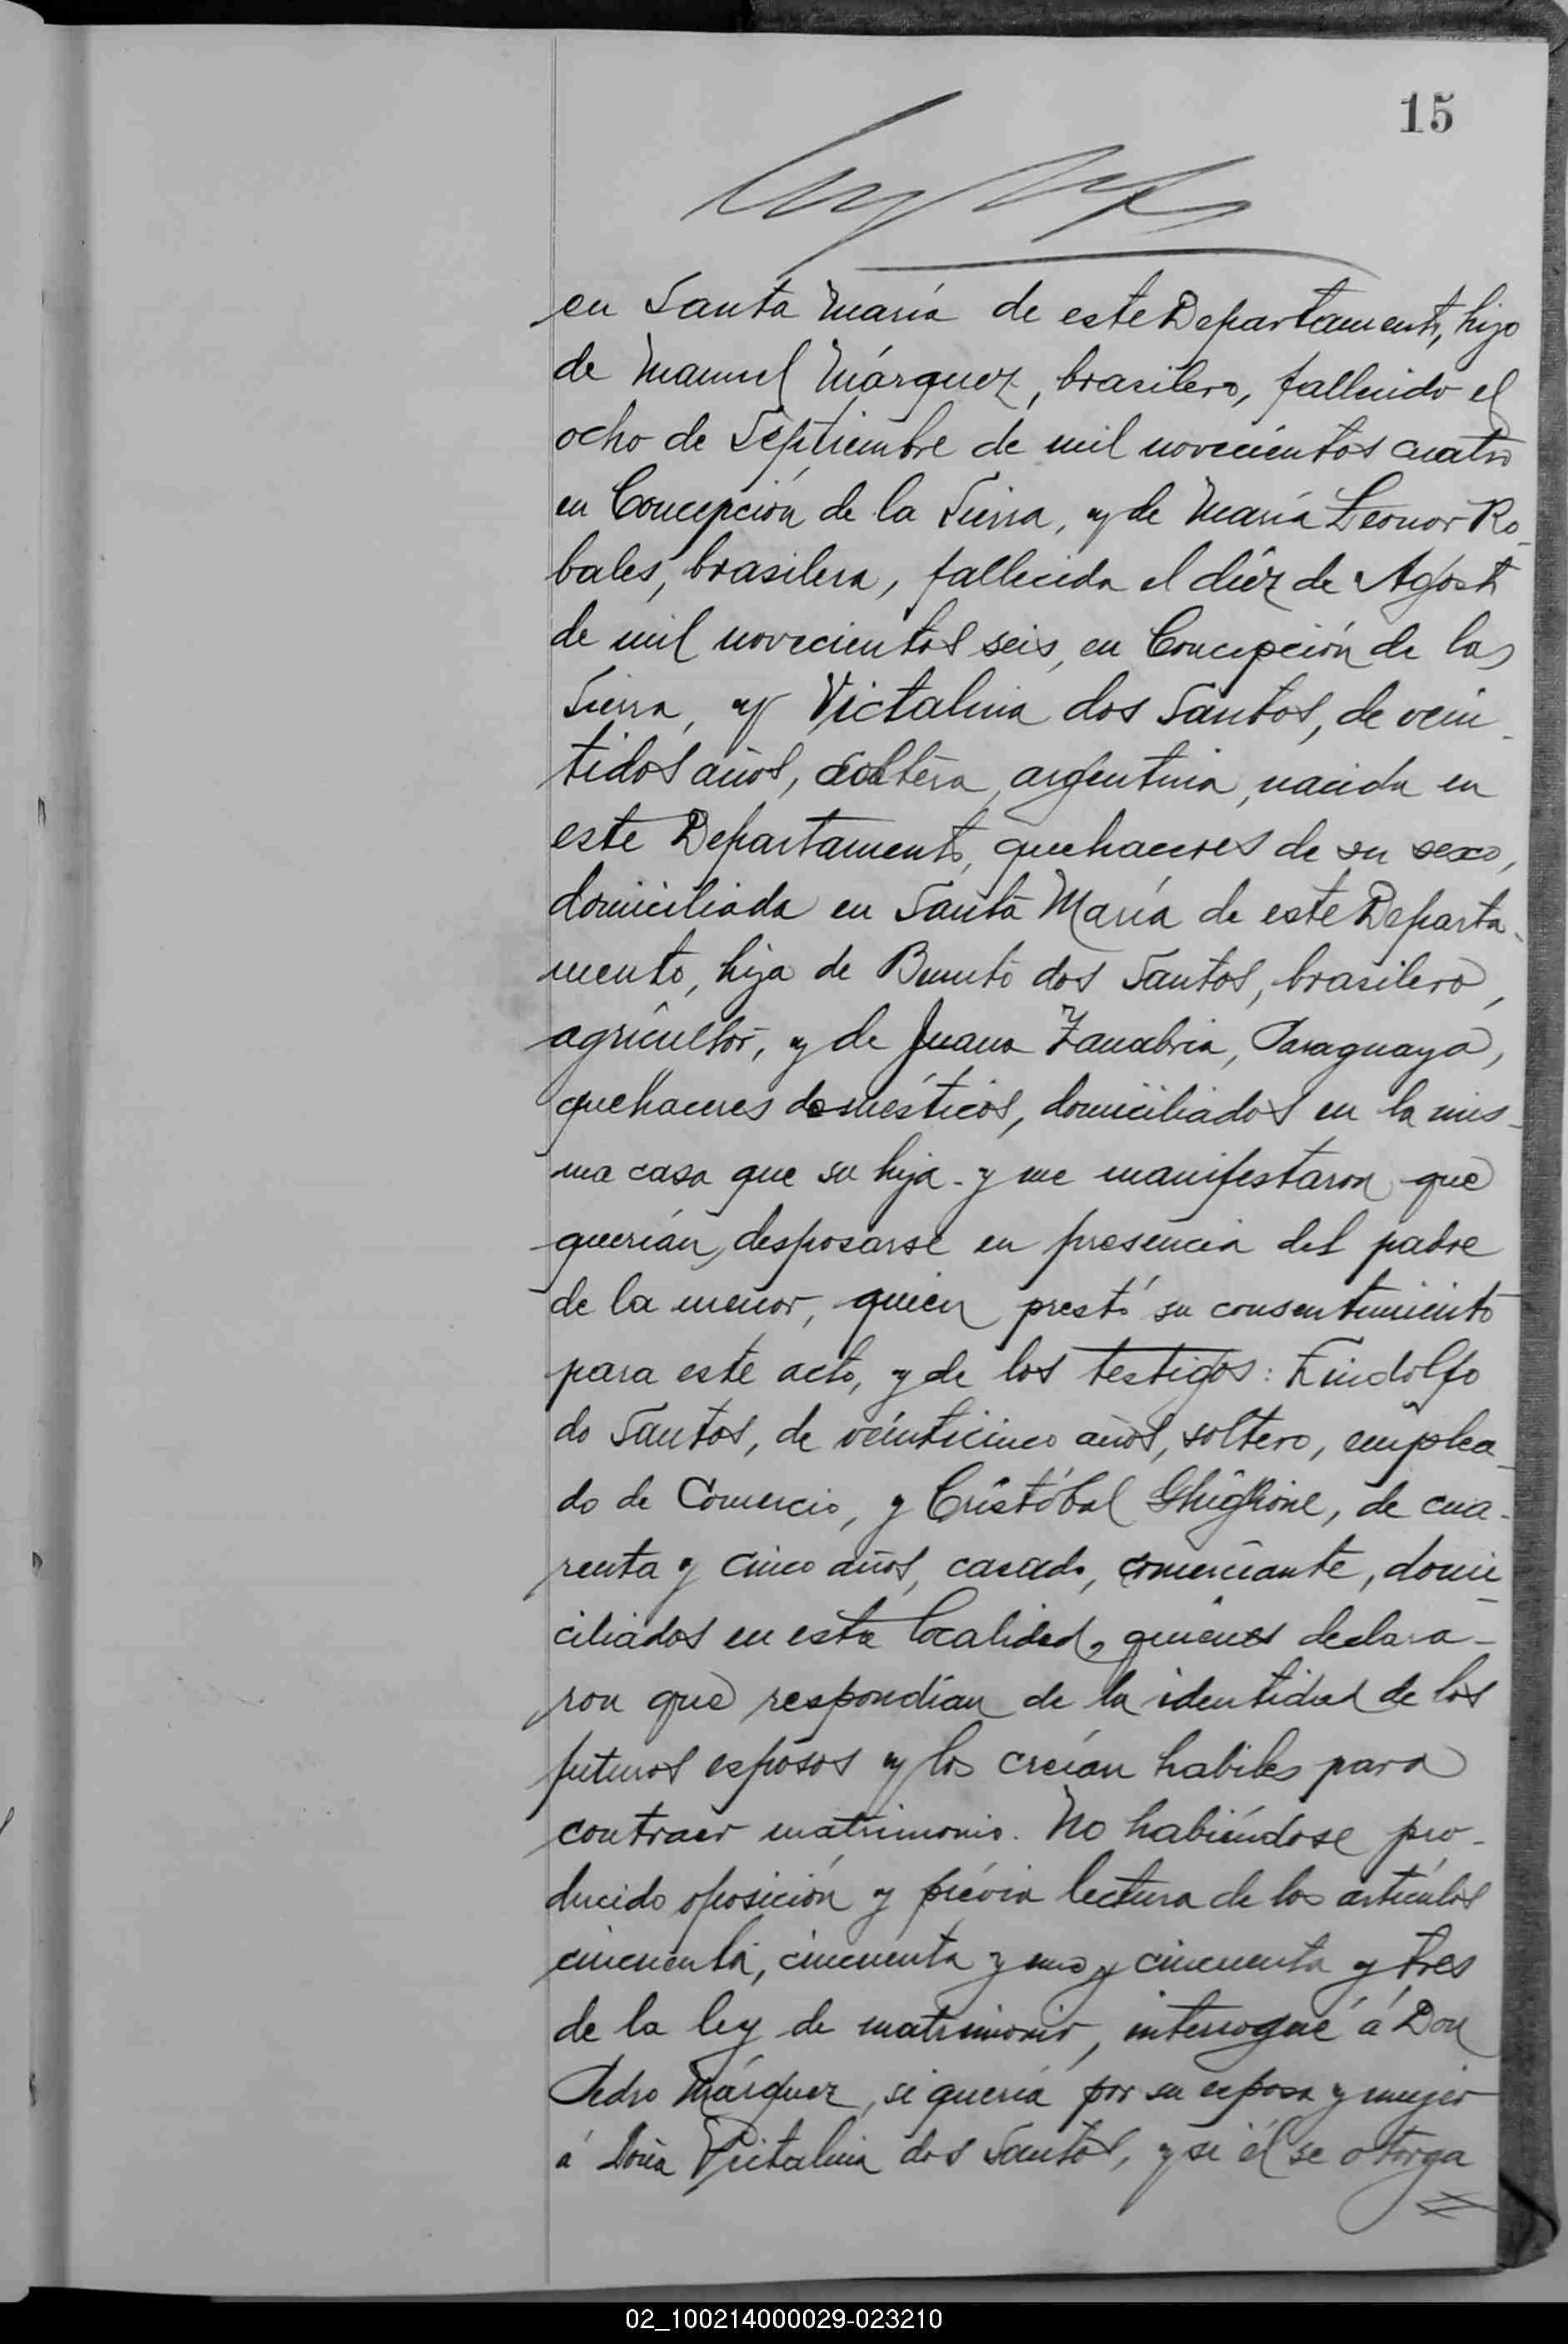 15
en Santa María de este Departamento, hijo
de Manuel Márquez, brasilero, fallecido el
ocho de Septiembre de mil novecientos cuatro
en Concepción de la Sierra, y de María Leonor Ro-
bales, brasilera, fallecida el diez de Agosto
de mil novecientos seis, en Concepción de la
Sierra, y Victalina dos Santos, de vein-
tidos años, soltera, argentina, nacida en
este Departamento, quehaceres de su sexo,
domiciliada en Santa María de este Departa-
mento, hija de Benito dos Santos, brasilero,
agricultor, y de Juana Zanabria, Paraguaya,
quehaceres domésticos, domiciliados en la mis-
ma casa que su hija - y me manifestaron que
querían desposarse en presencia del padre
de la menor, quien prestó su consentimiento
para este acto, y de los testigos: Lindolfo
do Santos, de veinticinco años, soltero, emplea-
do de Comercio, y Cristóbal Ghiglione, de cua-
renta y cinco años, casado, comerciante, domi-
ciliados en esta localidad, quienes declara-
ron que respondían de la identidad de los
futuros esposos y los creían habiles para
contraer matrimonio. No habiéndose pro-
ducido oposición y prévia lectura de los artículos
cincuenta, cincuenta y uno y cincuenta y tres
de la ley de matrimonio, interrogué á Don
Pedro Márquez, si quería por su esposa y mujer
á Doña Victalina dos Santos, y si él se otorga
02_100214000029-023210